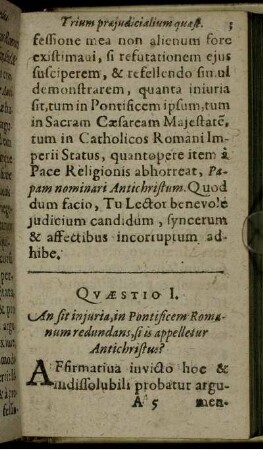 Trium præjudicialium quæst. 3
fessione mea non alienum fore
existimaui, si refutationem ejus
susciperem, & refellendo simul
demonstrarem, quanta iniuria
sit, tum in Pontificem ipsum, tum
in Sacram Cæsaream Majestatē,
tum in Catholicos Romani Im-
perii Status, quantopere item à
Pace Religionis abhorreat, Pa-
pam nominari Antichristum. Quod
dum facio, Tu Lector benevole
judicium candidum, syncerum
& affectibus incorruptum ad-
hibe.
QVÆSTIO I.
An sit injuria, in Pontificem Roma-
num redundans, si is appelletur
Antichristus?
AFfirmatiua invicto hoc &
indissolubili probatur argu-
A 5 men-